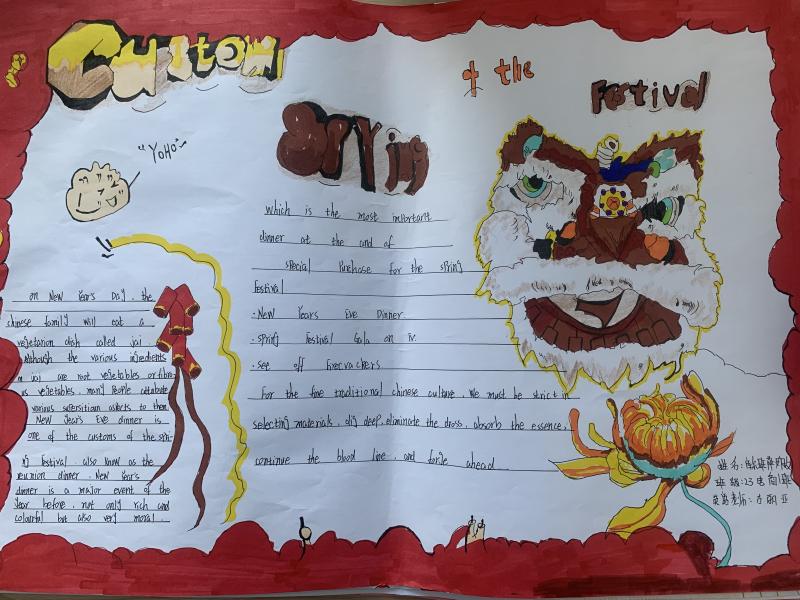 Custom
of the
Festival
Spring
"YOHO"~
on New Year's Day, the
chinese family will eat a
vegetarian dish called jai
Although the various ingredients
in jai are not vegetables or fibro
us vegetables, many people attribute
various superstitious aspects to them.
New Year's Eve dinner is
one of the customs of the spri-
ng festival also know as the
reunion dinner. New Year's
dinner is a major event of the
Year before, not only rich and
colourful but also very moral.
which is the most important
dinner at the end of
special Purchase for the spring
Festival
·New Years Eve Dinner
·spring Festival Gala on TV.
·see off firecrackers
For the fine traditional chinese culture, We must be strict in
selecting materials, dig deep, eliminate the dross, absorb the essence,
continue the blood line, and forge ahead
姓名:
班级:23电商1班
英语老师: